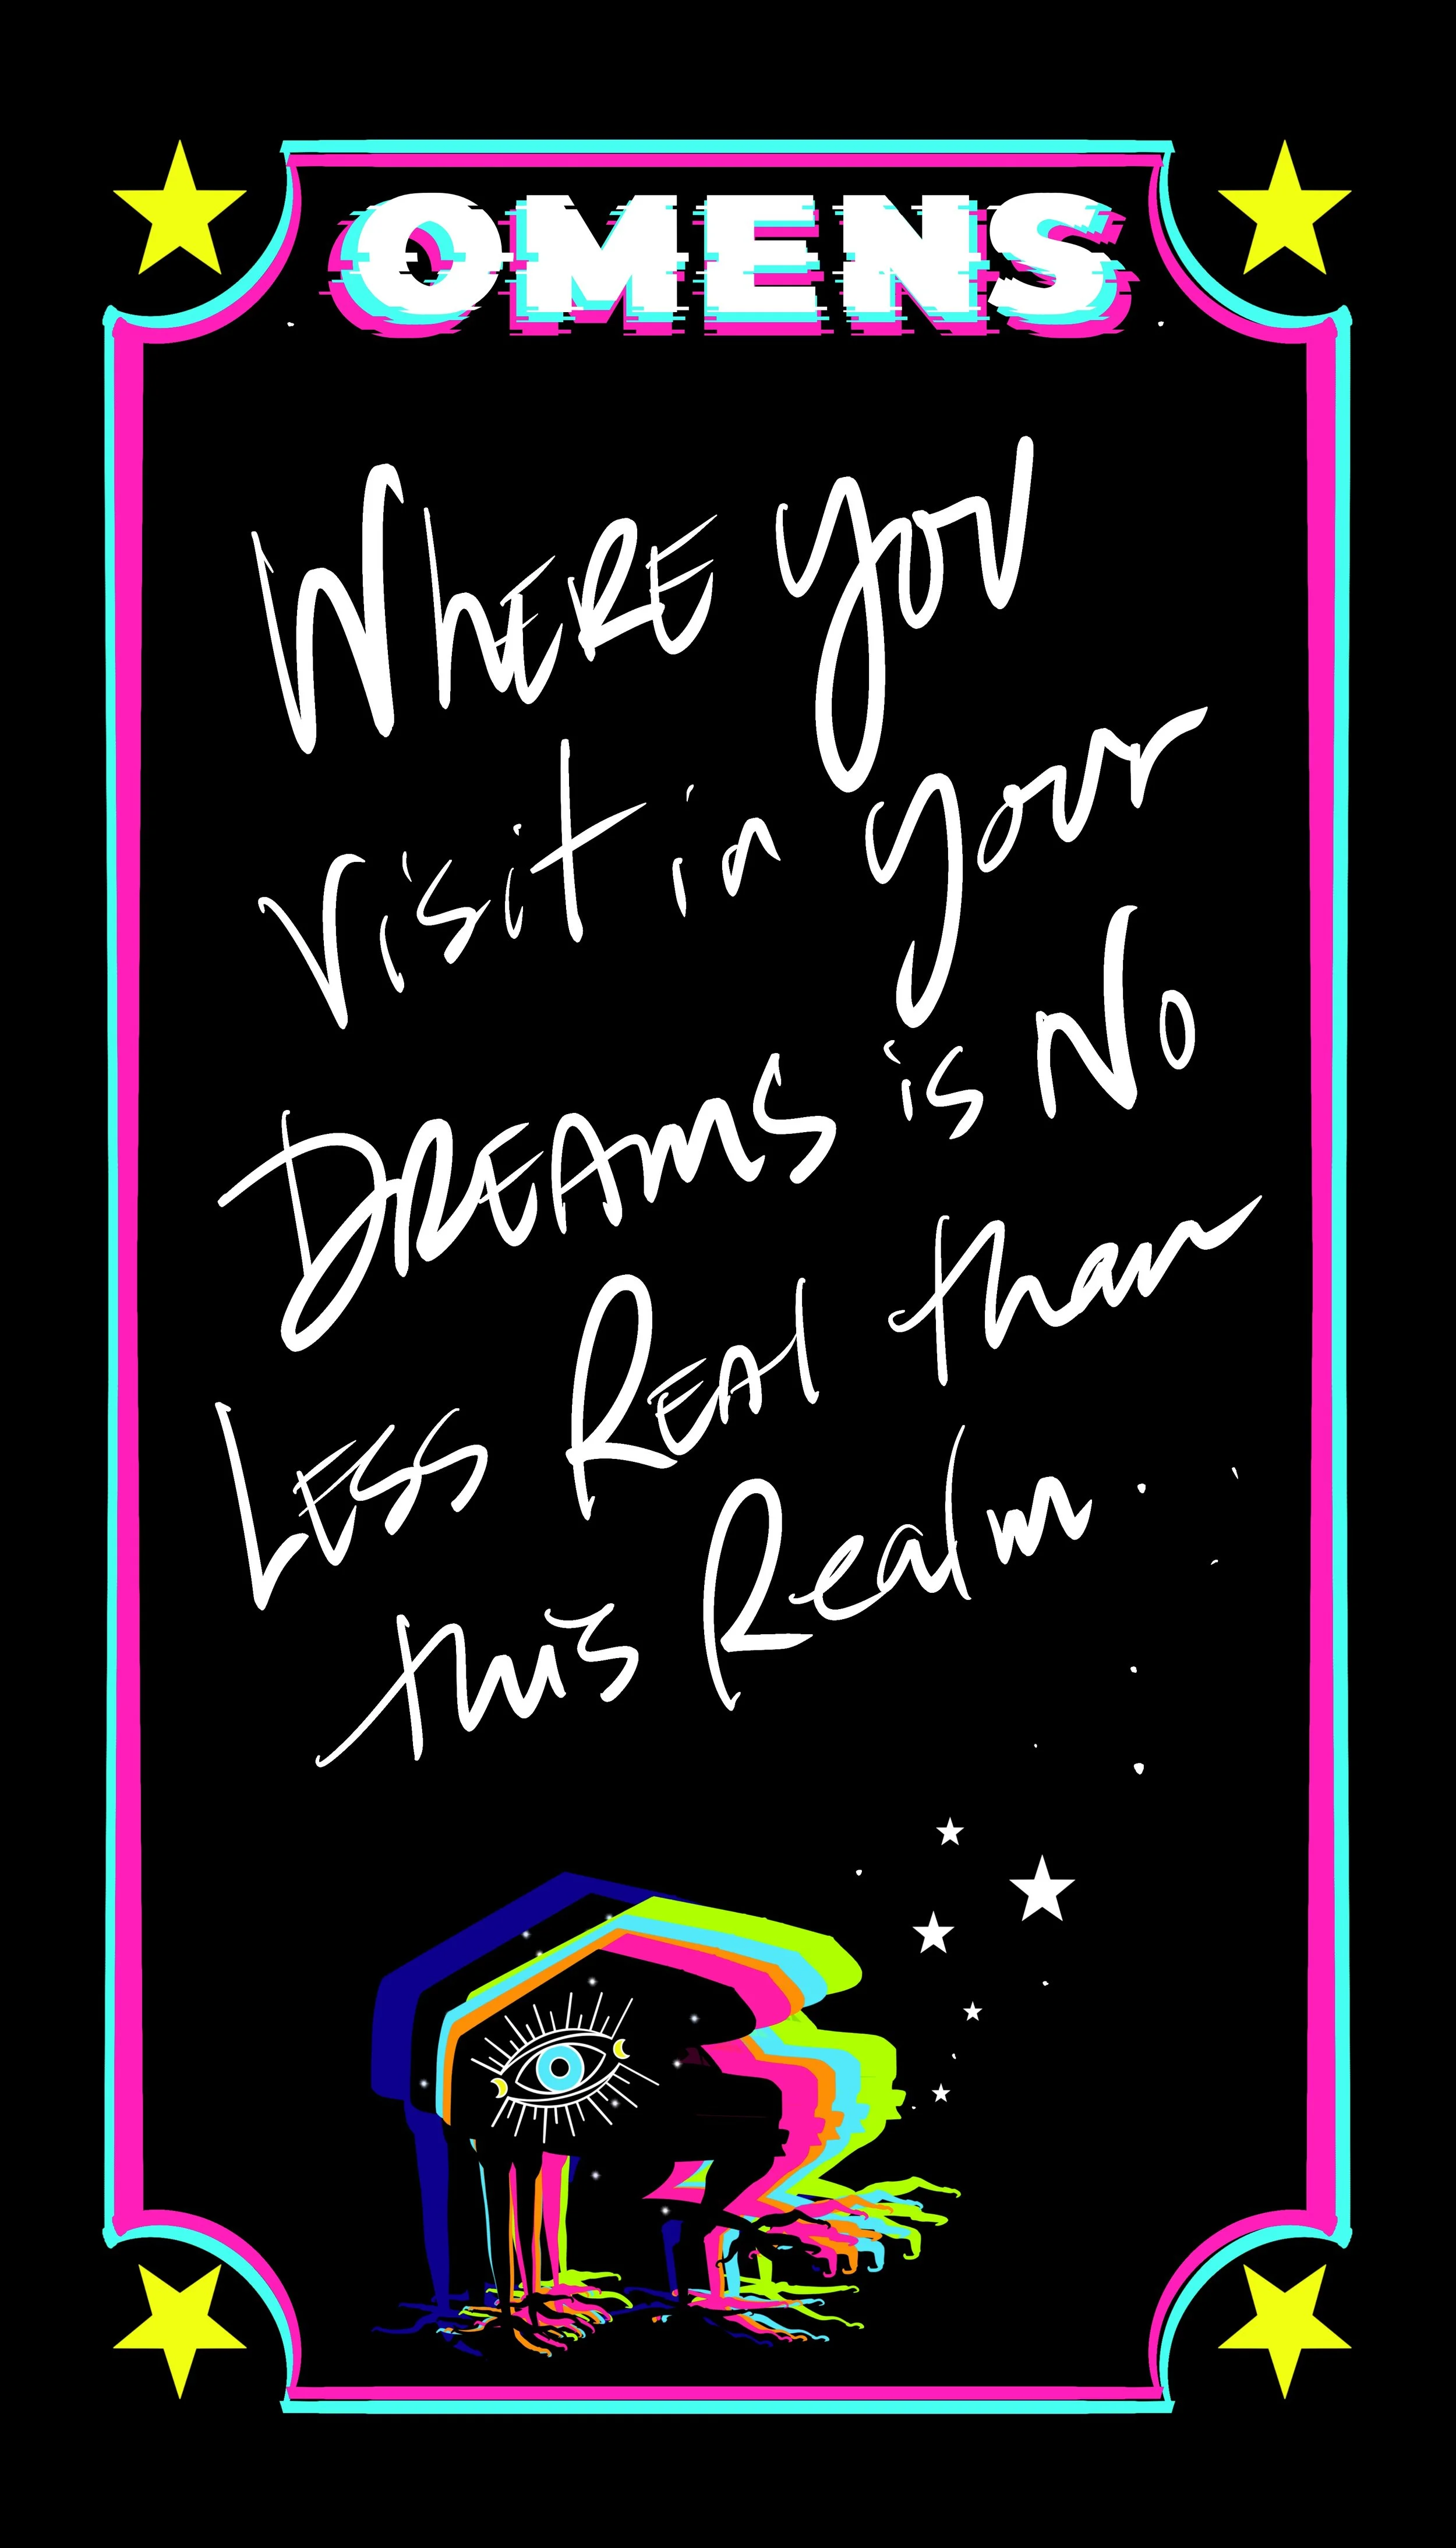 OMENS
WhERE you
visit in your
DREAMS is No
LESS REAl than
this Realm.